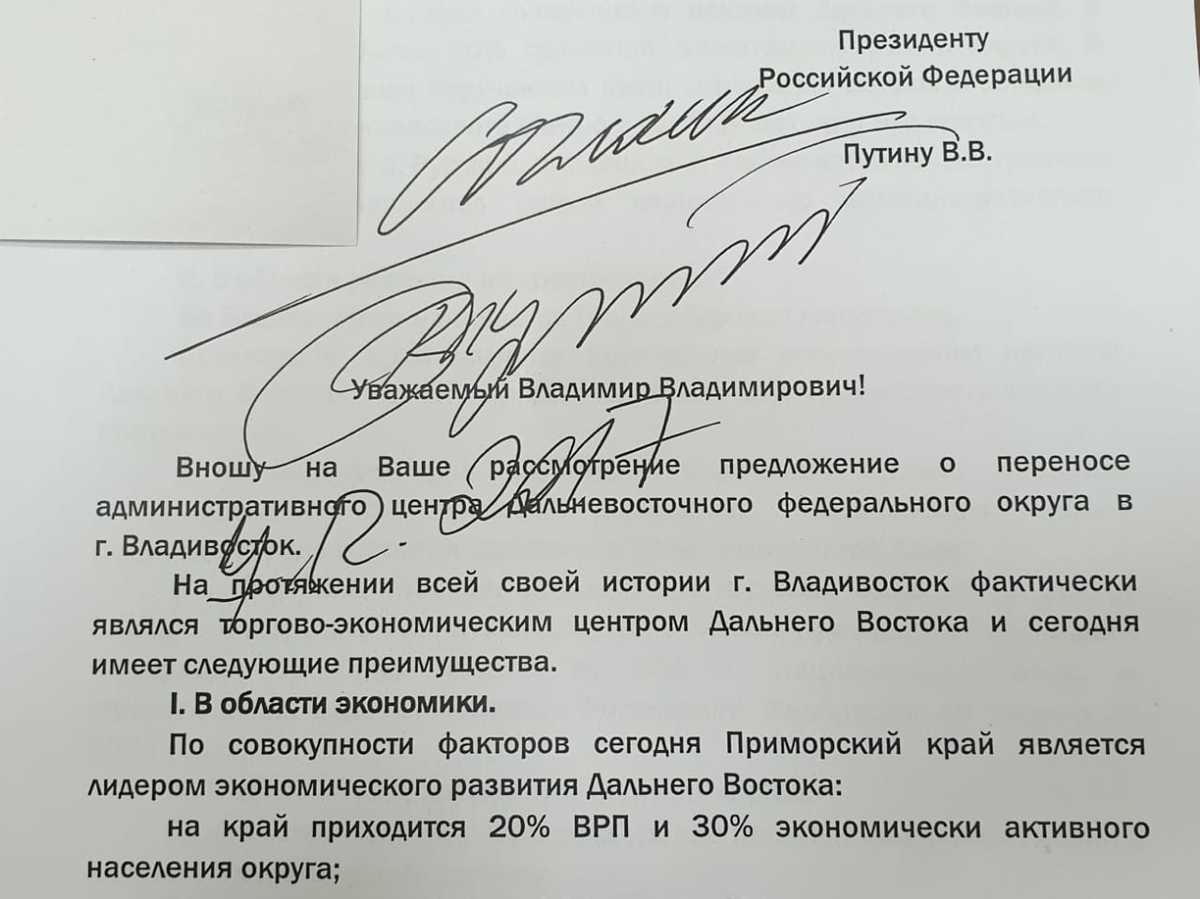 Президенту
Российской Федерации
Путину В.В.
Уважаемый Владимир Владимирович!
Вношу на Ваше рассмотрение предложение о переносе
административного центра Дальневосточного федерального округа в
г. Владивосток.
На протяжении всей своей истории г. Владивосток фактически
являлся торгово-экономическим центром Дальнего Востока и сегодня
имеет следующие преимущества.
I. В области экономики.
По совокупности факторов сегодня Приморский край является
лидером экономического развития Дальнего Востока:
на край приходится 20% ВРП и 30% экономически активного
населения округа;